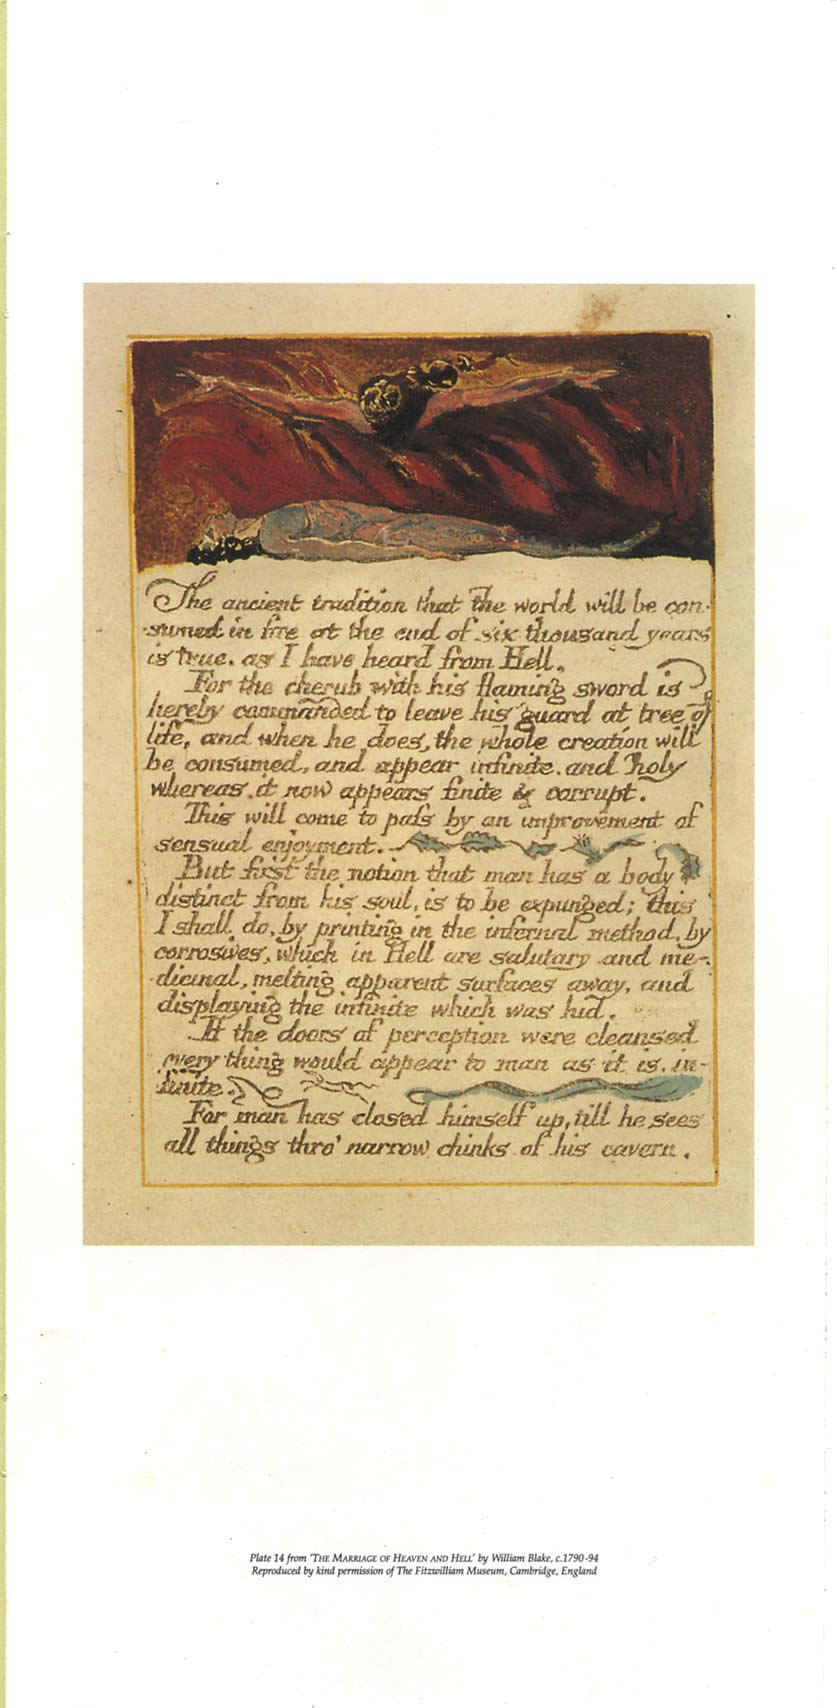 The ancient tradition that the world will be con-
sumed in fire at the end of six thousand years
is true. as I have heard from Hell.
For the cherub with his flaming sword is
hereby commanded to leave his guard at tree of
life, and when he does, the whole creation will
be consumed, and appear infinite. and holy
whereas it now appears finite & corrupt.
This will come to pass by an improvement of
sensual enjoyment.
But first the notion that man has a body
distinct from his soul, is to be expunged; this
I shall do, by printing in the infernal method, by
corrosives, which in Hell are salutary and me-
dicinal, melting apparent surfaces away, and
displaying the infinite which was hid.
If the doors of perception were cleansed
every thing would appear to man as it is, in-
finite.
For man has closed himself up, till he sees
all things thro' narrow chinks of his cavern.
Plate 14 from 'THE MARRIAGE OF HEAVEN AND HELL' by William Blake, c.1790-94
Reproduced by kind permission of The Fitzwilliam Museum, Cambridge, England